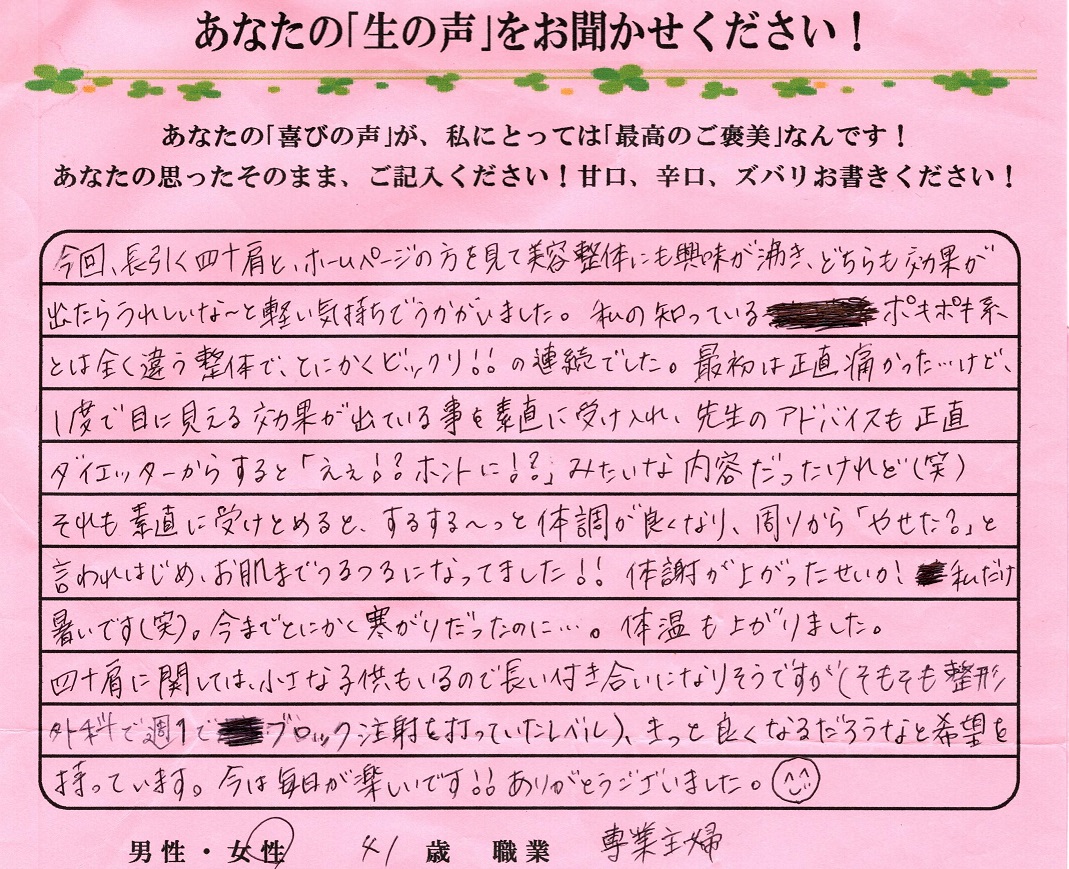 あなたの「生の声」をお聞かせください！
あなたの「喜びの声」が、私にとっては「最高のご褒美」なんです！
あなたの思ったそのまま、ご記入ください！甘口、辛口、ズバリお書きください！
今回、長引く四十肩と、ホームページの方を見て美容整体にも興味が沸き、どちらも効果が
出たらうれしいな〜と軽い気持ちでうかがいました。私の知っている ポキポキ系
とは全く違う整体で、とにかくビックリ!!の連続でした。最初は正直痛かった…けど、
1度で目に見える効果が出ている事を素直に受け入れ、先生のアドバイスも正直
ダイエッターからすると「ええ!?ホントに!?」みたいな内容だったけれど(笑)
それも素直に受けとめると、するする〜っと体調が良くなり、周りから「やせた?」と
言われはじめ、お肌までつるつるになってました!! 体謝が上がったせいか! 私だけ
暑いです(笑)。今までとにかく寒がりだったのに…。体温も上がりました。
四十肩に関しては、小さな子供もいるので長い付き合いになりそうですが(そもそも整形
外科で週1で ブロック注射を打っていたレベル)、きっと良くなるだろうなと希望を
持っています。今は毎日が楽しいです!!ありがとうございました。
男性・女性 41 歳 職業 専業主婦